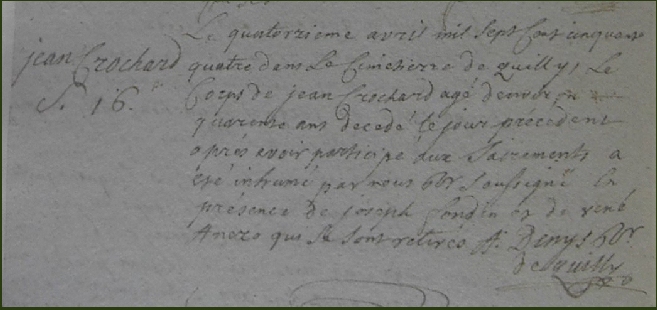 jean Crochard
S. 16.
Le quatorzieme avril mil Sept Cent cinquante
quatre dans Le Cimetierre de Quilly, Le
Corps de jean Crochard agé denviron
quarente ans decedé le jour precedent
aprés avoir participé aux Sacrements a
été inhumé par nous pbr Soussigné En
présence de joseph et de rené
qui se sont retirés A. Denys pbr
de quilly